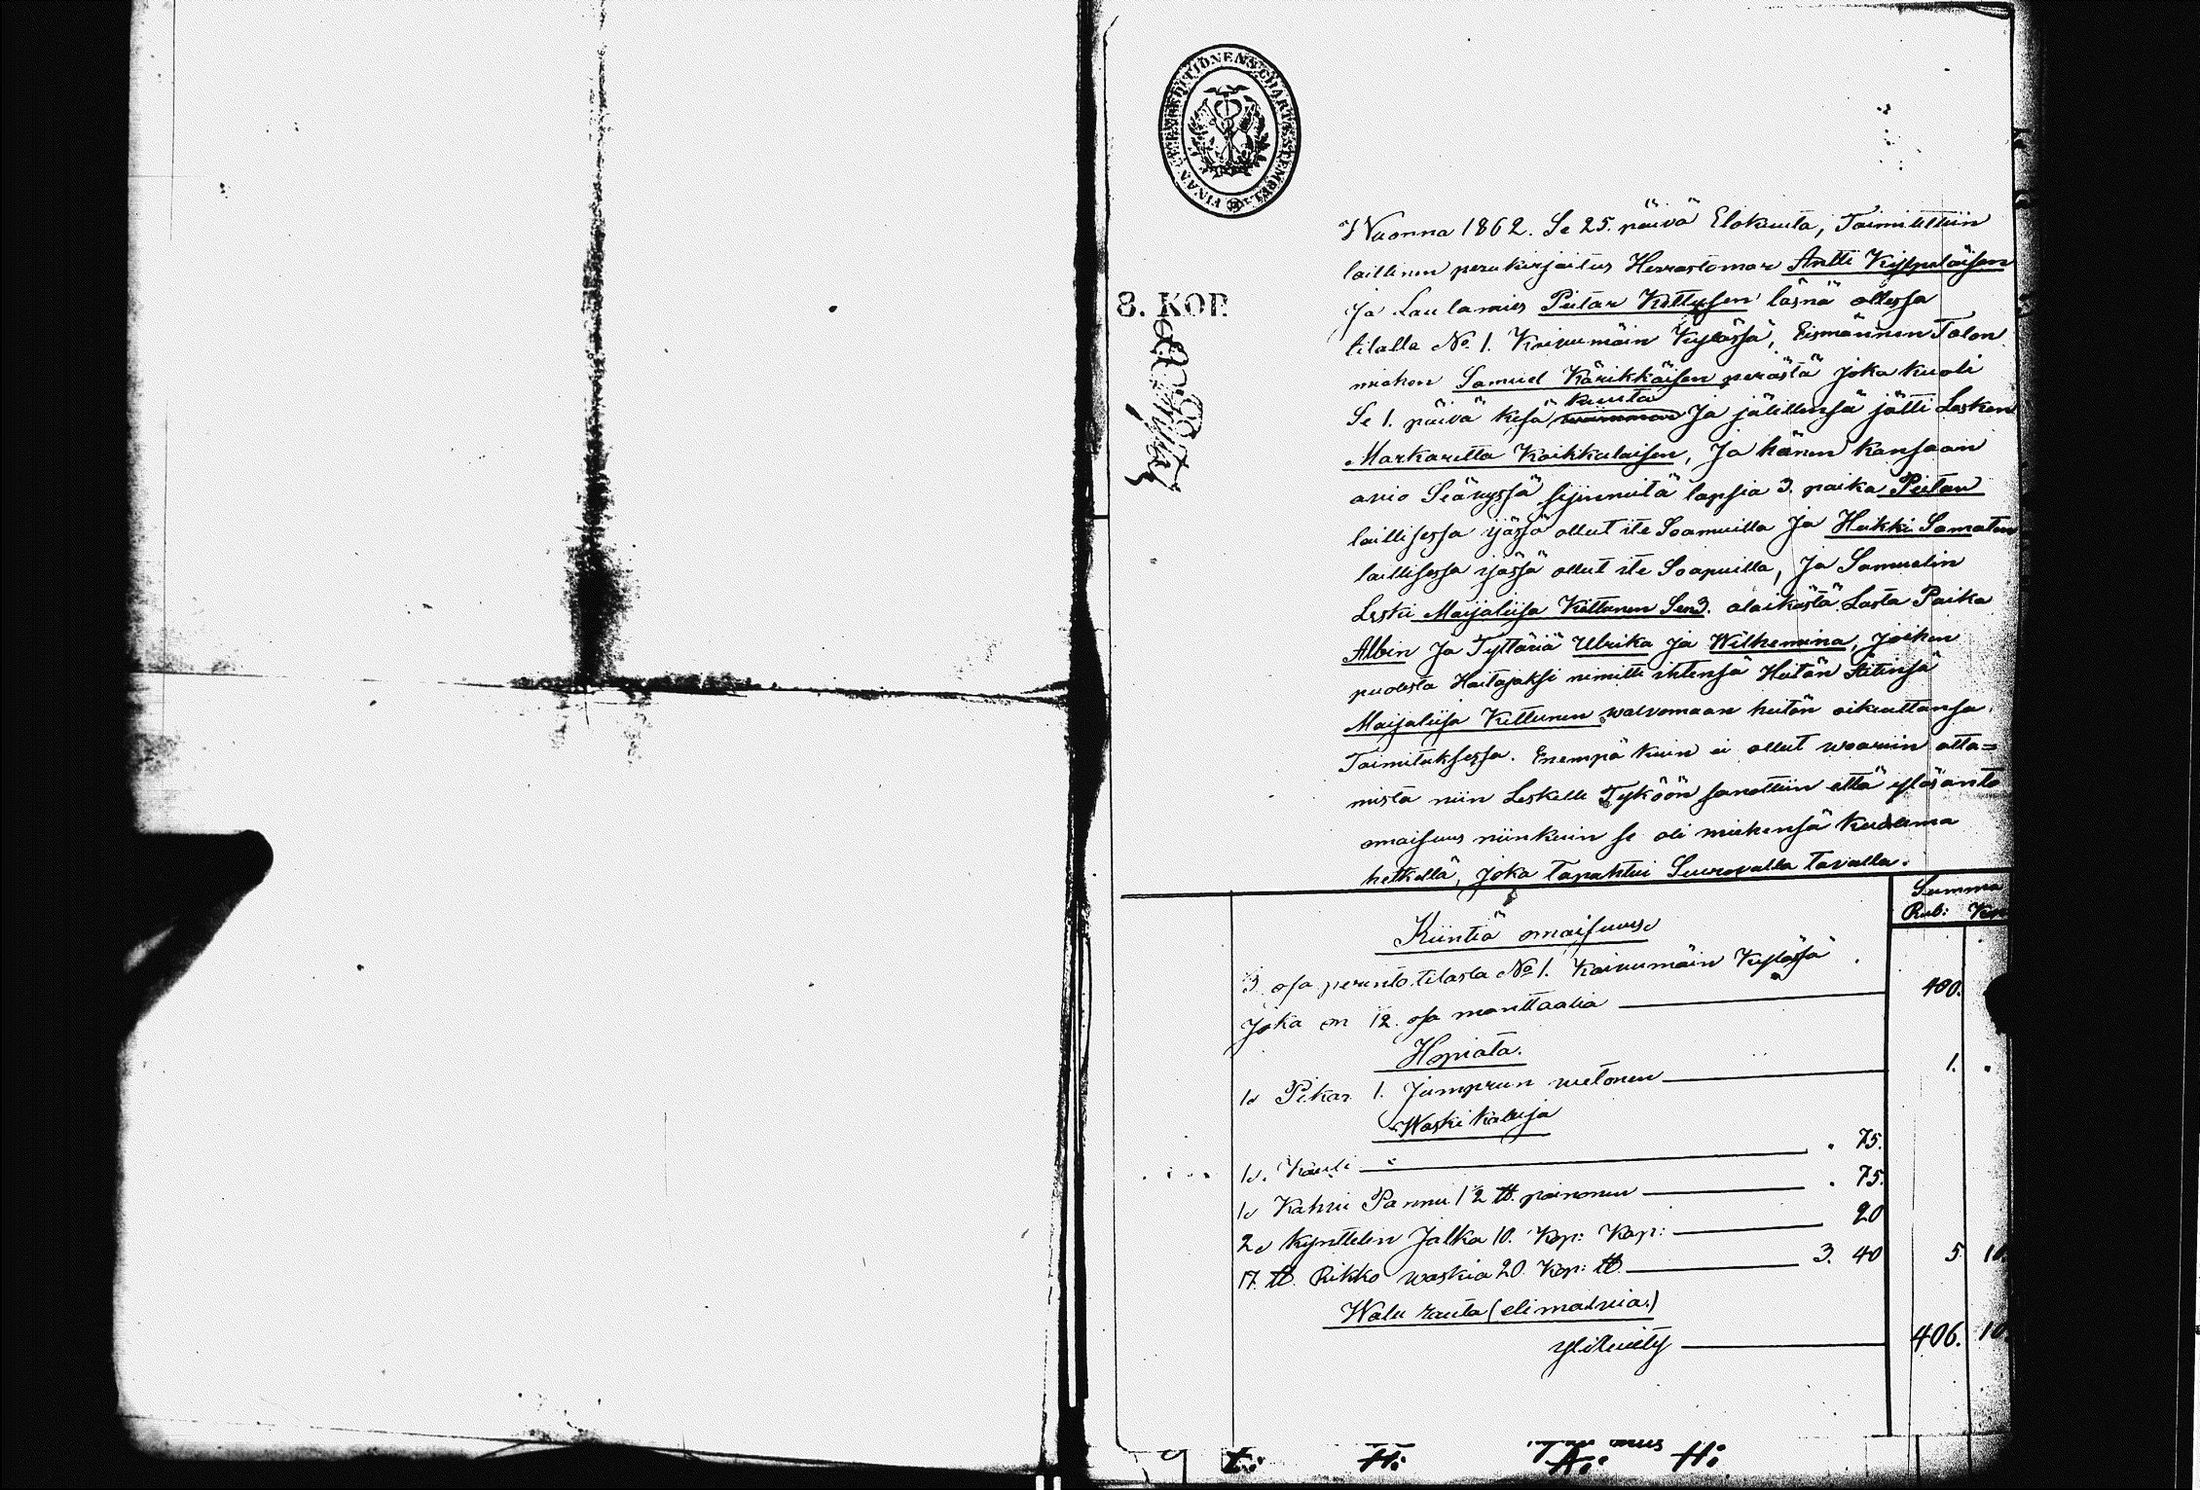 FINANCE EXPEDITIONENS CHARTÆ STEMPEL
8. KOP.
Wuonna 1862. Se 25. päivä Elokuuta, Toimitettiin
laillinen perukirjoitus Herrastomari Antti Kylpelaisen
ja Lautamies Pietar Kettusen läsnä ollessa
tilalla No 1. Koivumäin Kylässä, Eismännen Talon
miehen Samuel Kärikkäisen perästä joka kuoli
Se 1. päivä kesä kuuta ja jälillensä jätti Lesken
Markaretta Kaikkalaisen, Ja hänen kansaan
avio Seävyssä sijinneitä lapsia 3. poika Pietar
laillisessa ijässä ollut ite Soapuilla Ja Heikki Samaten
laillisessa ijässä ollut ite Soapuilla, Ja Samuelin
Leski Maijaliisa Kettunen Sen 3. alaikästä Lasta Poika
Albin Ja Tyttäriä Ulrika ja Wilhemina, joihen
puolesta Hoitajaksi nimitti ihtensä Heitän Äitinsä
Maijaliisa Kettunen walvomaan heitän oikeuttansa
Toimituksessa. Enempä kuin ei ollut waariin otta=
mista niin Leskelle Tyköön sanottiin että ylösanto
omaisuus niinkuin se oli miehensä kuolema
hetkellä, joka tapahtui Seuravalla tavalla.
Summa
Rub: Kop
Kiintiä omaisuus
3 osa perintö tilasta No 1. Koivumäin Kylässä
Joka on 12. osa manttaalia 400.
Hopiata.
1 Pikar 1. Jumprun wetonen 1.
Waski kaluja
1 Kauli 75.
1 Kahvi Pannu 1/2 ℔ painonen 75.
2 Kynttelin Jalka 10. Kop: Kap: 20
17 ℔ Rikko waskia 20 Kop: ℔ 3. 40 5 10.
Walu rauta (eli malmia.)
yliteviety 406. 10.